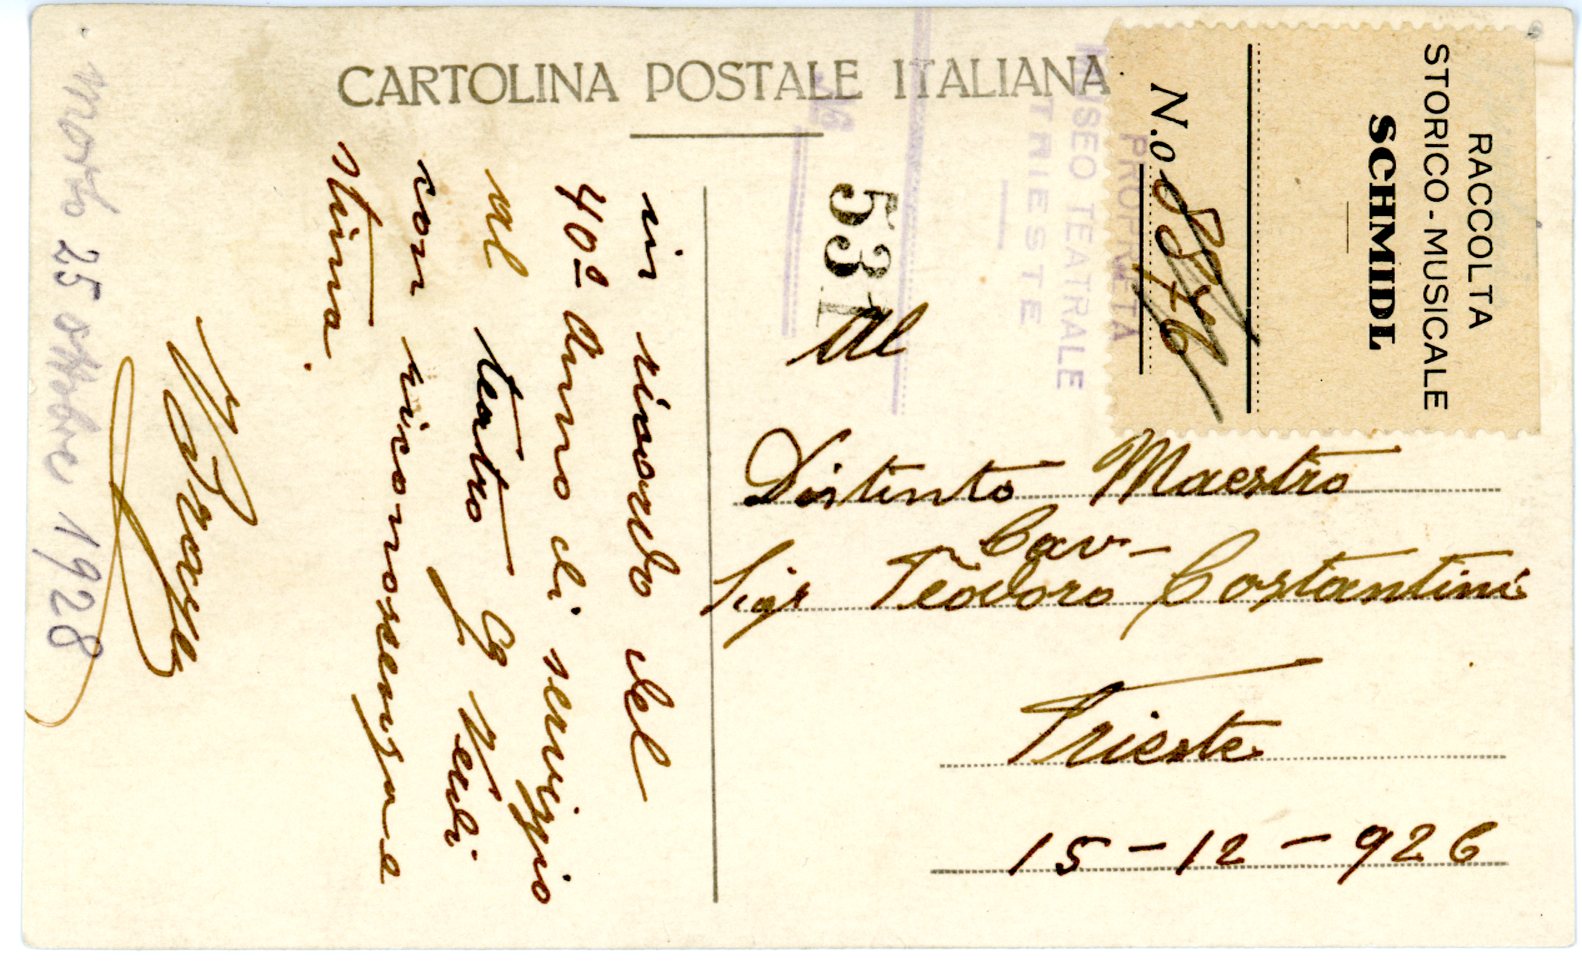 CARTOLINA POSTALE ITALIANA
RACCOLTA
STORICO-MUSICALE
SCHMIDL
N.o 876
PROPRIETÀ
MUSEO TEATRALE
TRIESTE
No
531
Al
Distinto Maestro
Cav-
Sigr Teodoro Costantini
Trieste
15-12-926
in ricordo del
40º anno di servizio
al teatro G Verdi
con riconoscenza e
stima.
morto 25 ottobre 1928